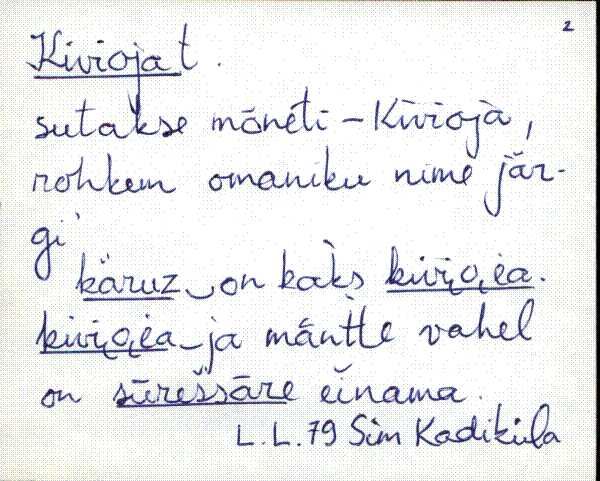 2
Kiviojat.
sutakse mōnéti – Kivioja,
rohkem omaniku nime jär-
gi
käruz‿on kàks kivi̮o̮i̮ėa.
kivi̮o̮i̮ėa‿ja mäǹtte vahel
on sūreššāre ĕinama.
L.L. 79 Sim Kadiküla